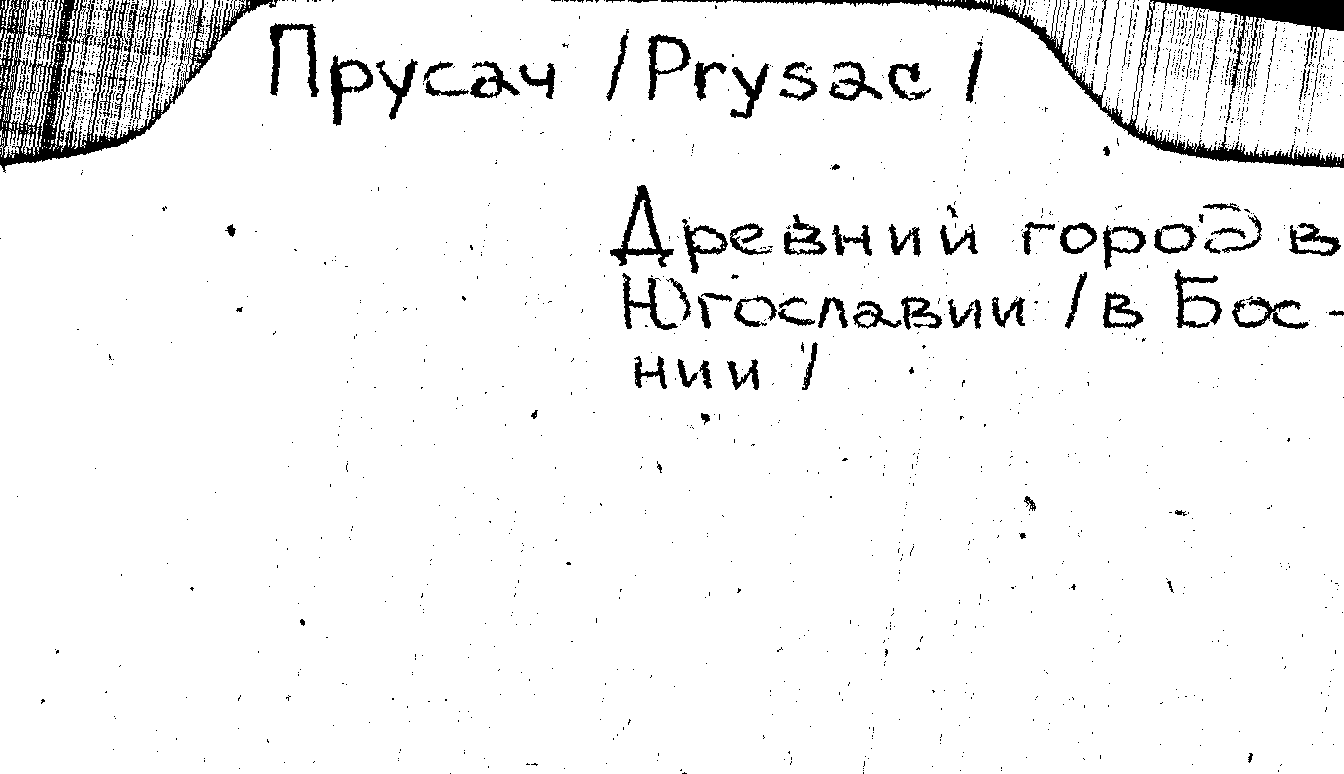 Прусач /Prysac /
Древний город в
Югославии /в Бос-
нии /